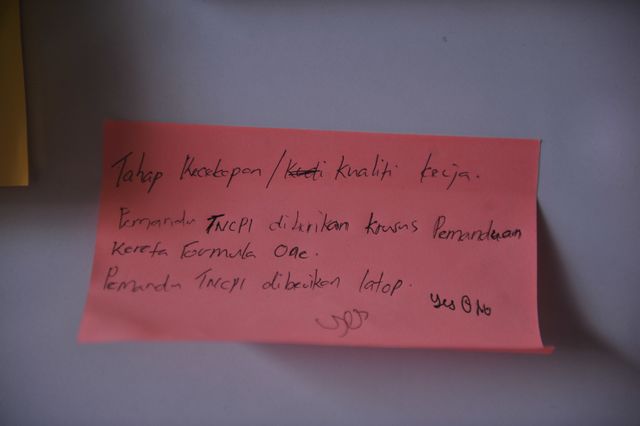 Tahap Kecekapan / Kualiti kerja.
Pemandu TNCPI diberikan kursus Pemanduan
Kereta Formula One.
Pemandu TNCPI diberikan latop.
Yes @ No
yes